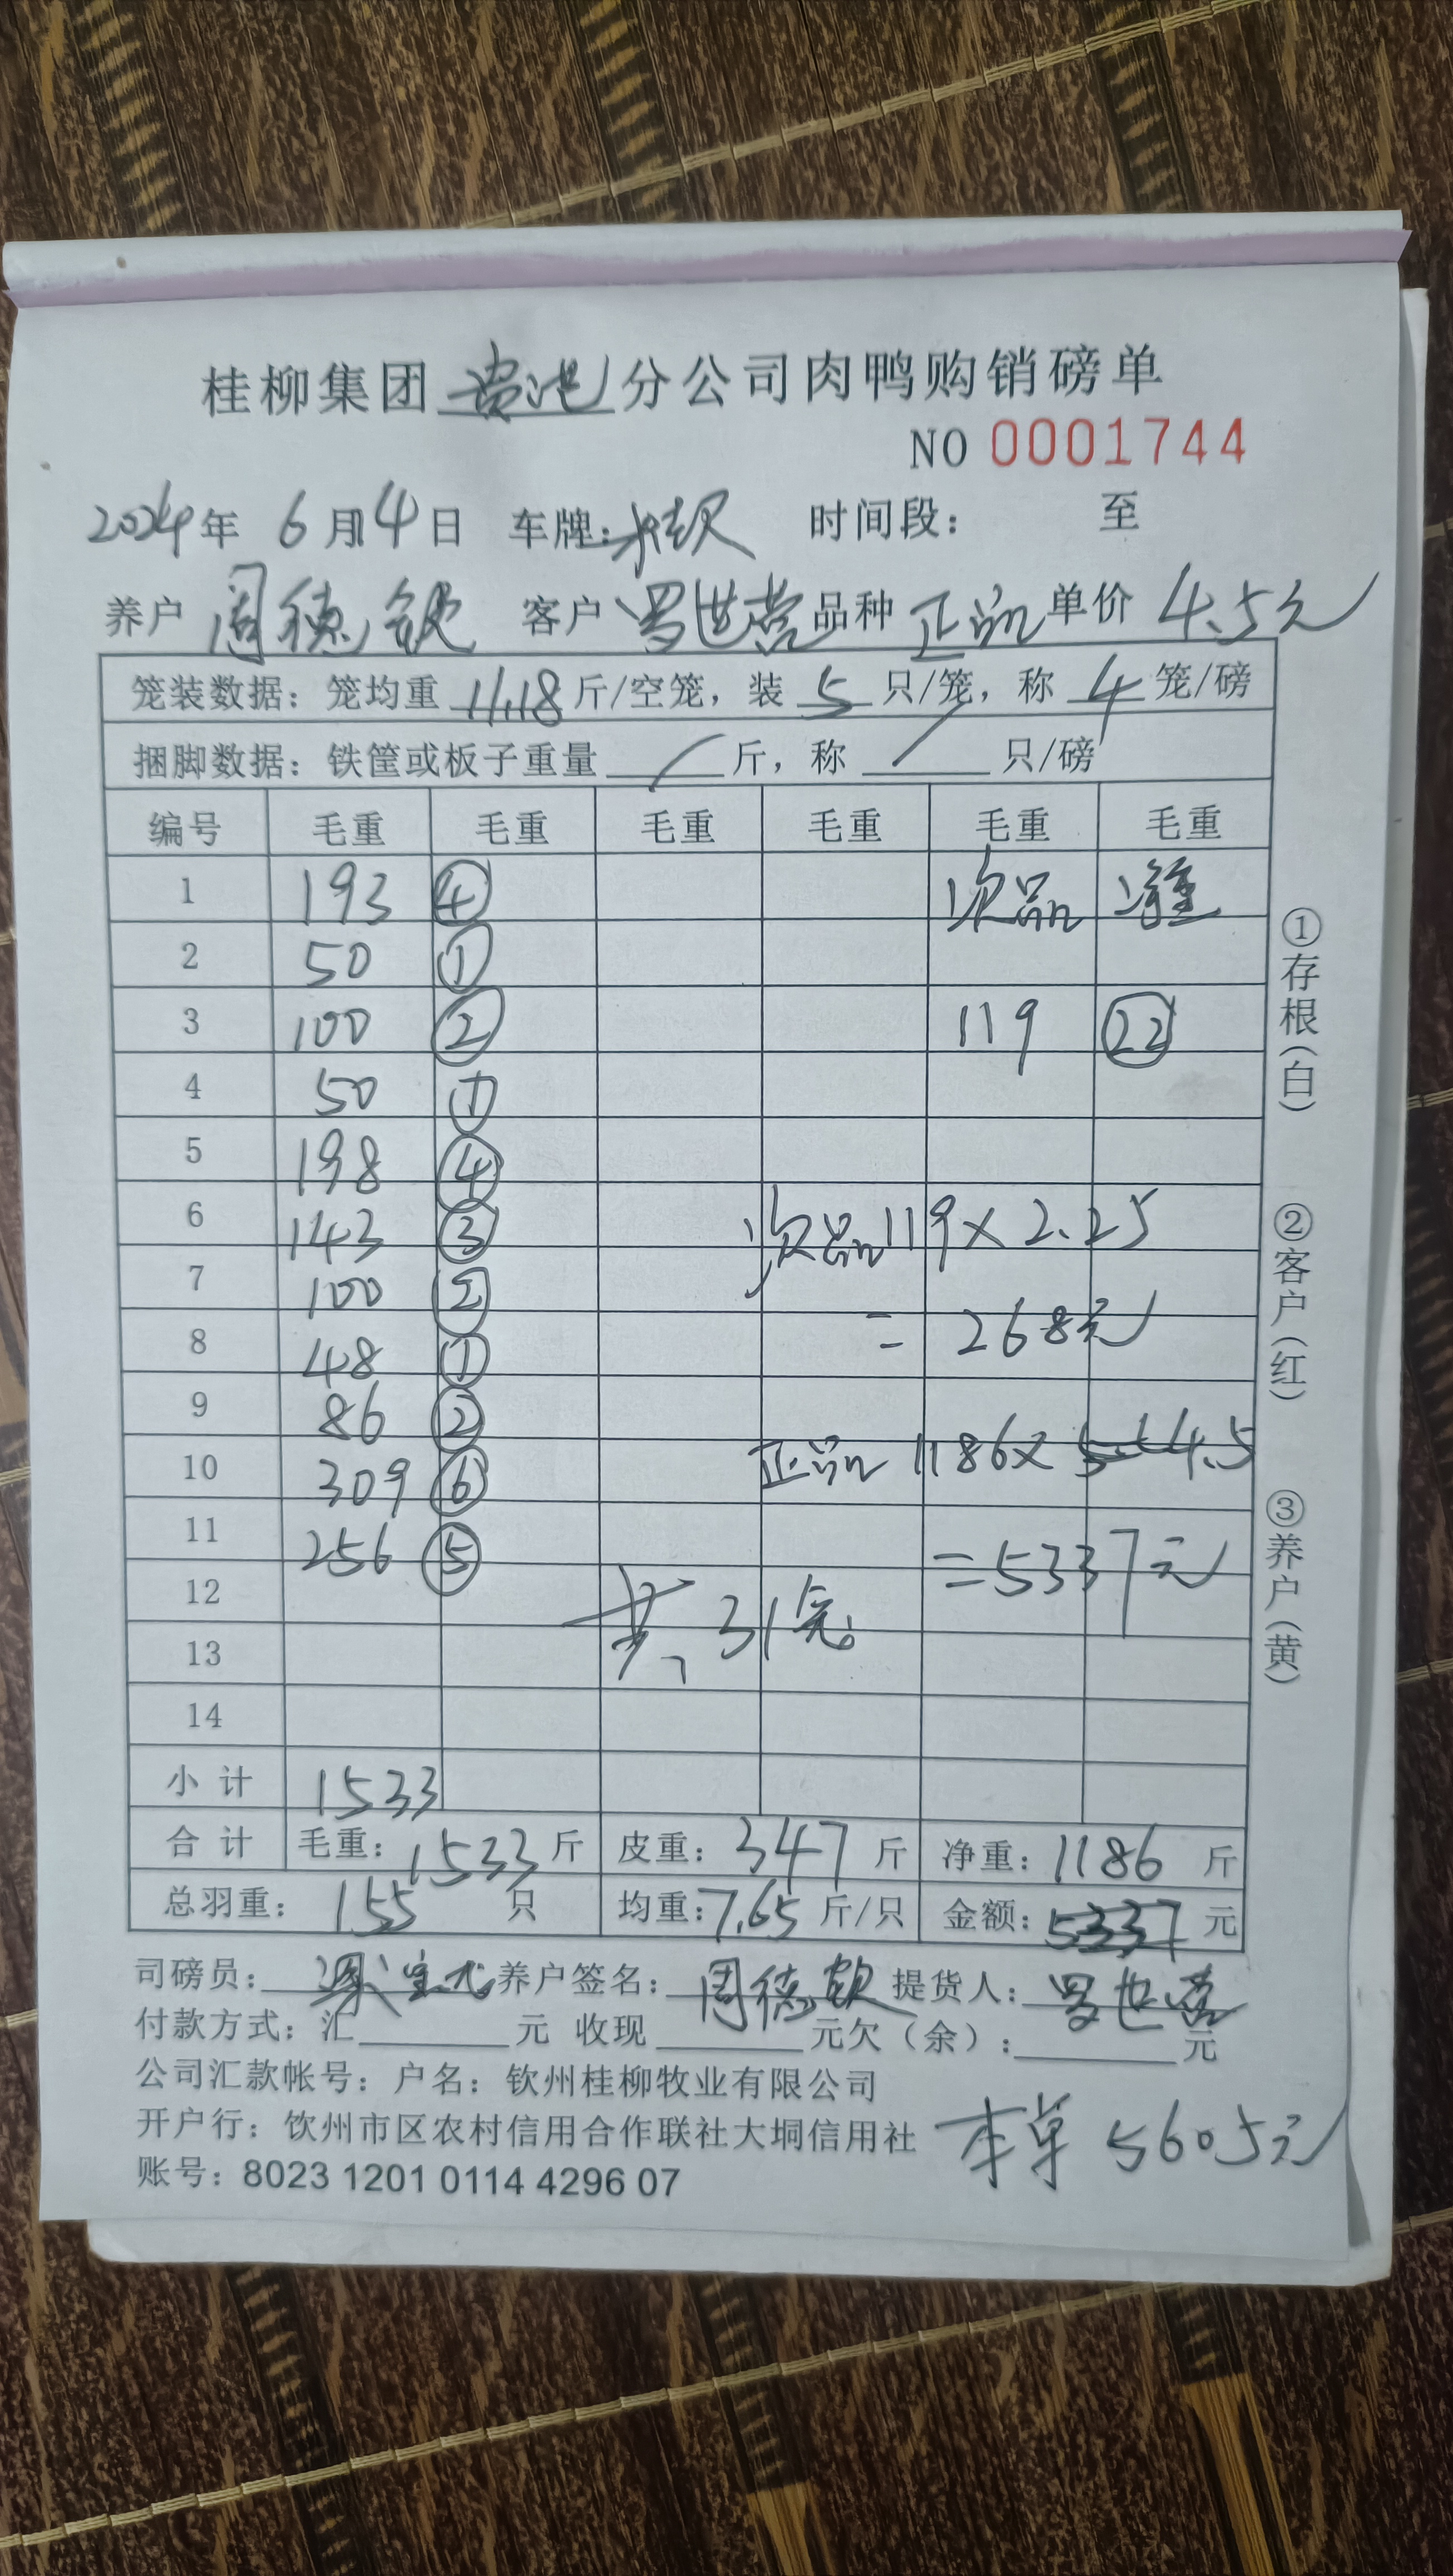 桂柳集团 贵港 分公司肉鸭购销磅单
NO 0001744
2024年 6月4日 车牌: 时间段: 至
养户 周德钦 客户 罗世营 品种 正品 单价 4.5元
笼装数据: 笼均重 11.18 斤/空笼, 装 5 只/笼, 称 4 笼/磅
捆脚数据: 铁筐或板子重量 / 斤, 称 / 只/磅
编号 毛重 毛重 毛重 毛重 毛重 毛重
1 193 ④ 次品 净重
2 50 ①
3 100 ② 119 ㉒
4 50 ①
5 198 ④
6 143 ③ 次品119×2.25
7 100 ②
8 48 ① = 268元
9 86 ②
10 309 ⑥ 正品 1186× 4.5
11 256 ⑤ =5337元
12 共、31笼
13
14
小 计 1533
合 计 毛重: 1533 斤 皮重: 347 斤 净重: 1186 斤
总羽重: 155 只 均重: 7.65 斤/只 金额: 5337 元
司磅员: 养户签名: 周德钦 提货人: 罗世营
付款方式: 汇 元 收现 元欠(余): 元
公司汇款帐号: 户名: 钦州桂柳牧业有限公司
开户行: 饮州市区农村信用合作联社大垌信用社
本单 5605元
账号: 8023 1201 0114 4296 07
①存根(白)
②客户(红)
③养户(黄)